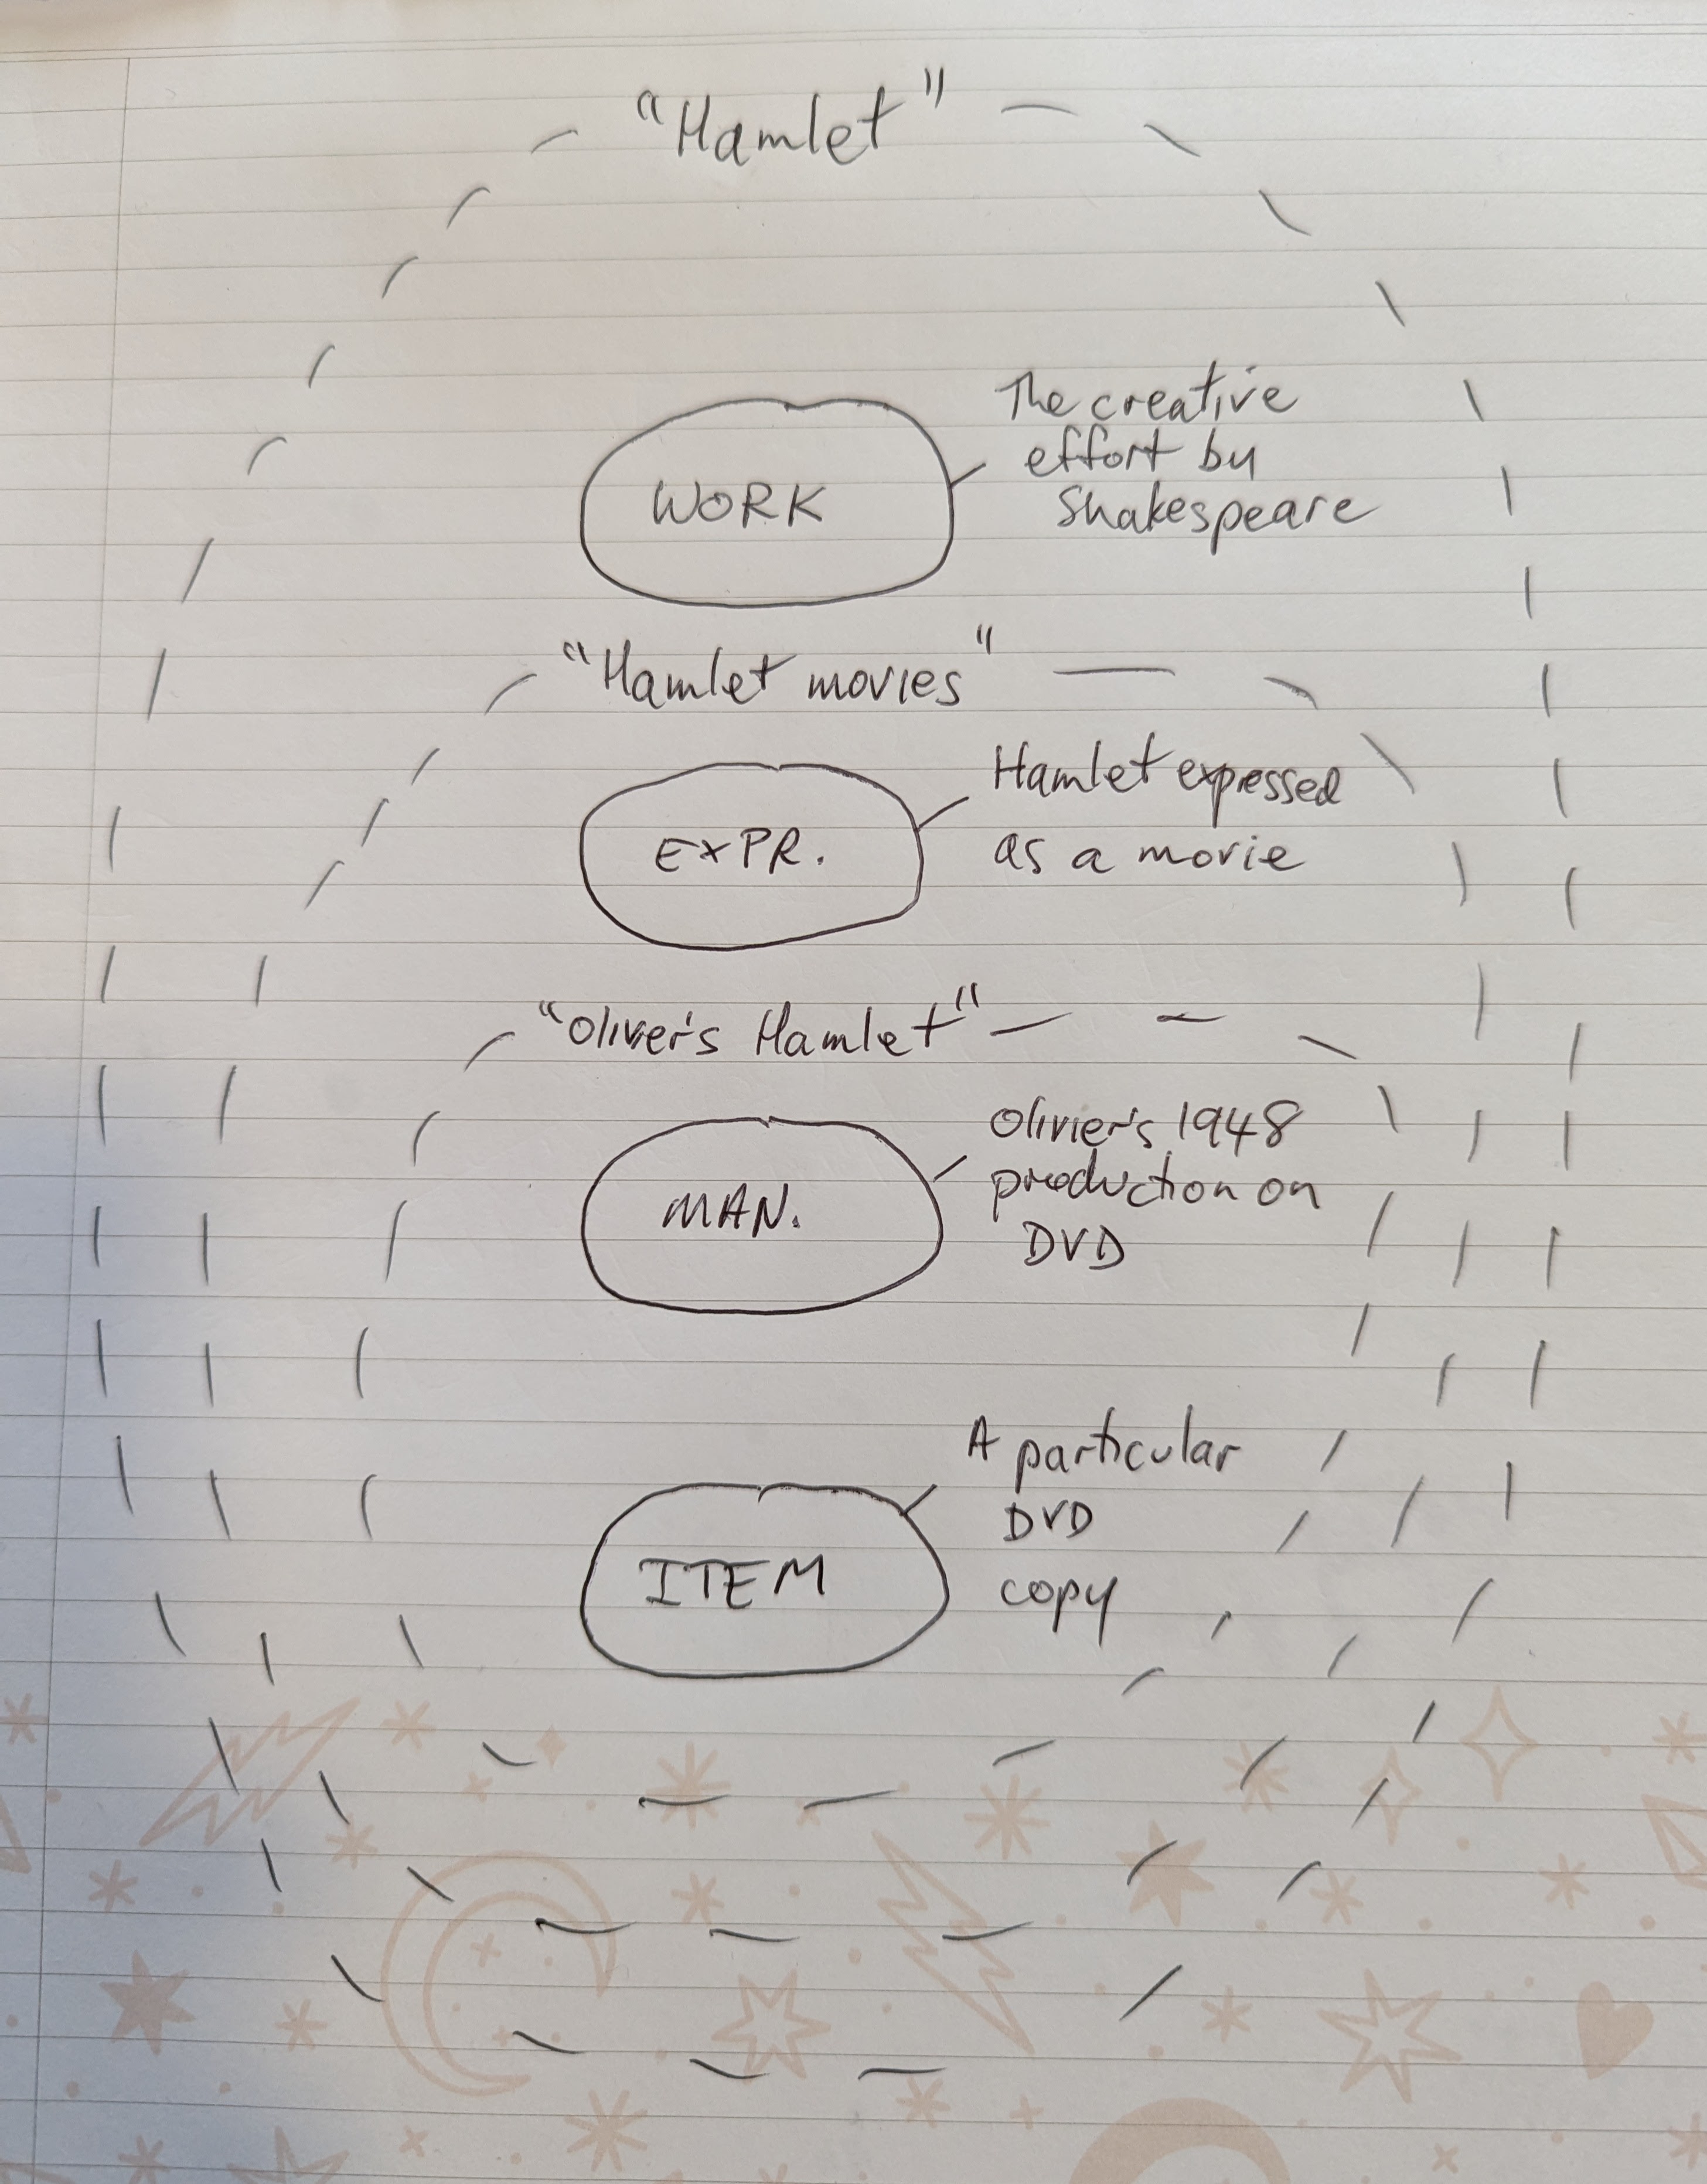 "Hamlet"
The creative
effort by
Shakespeare
WORK
"Hamlet movies"
Hamlet expressed
as a movie
EXPR.
"Oliver's Hamlet"
Olivier's 1948
production on
DVD
MAN.
A particular
DVD
copy
ITEM